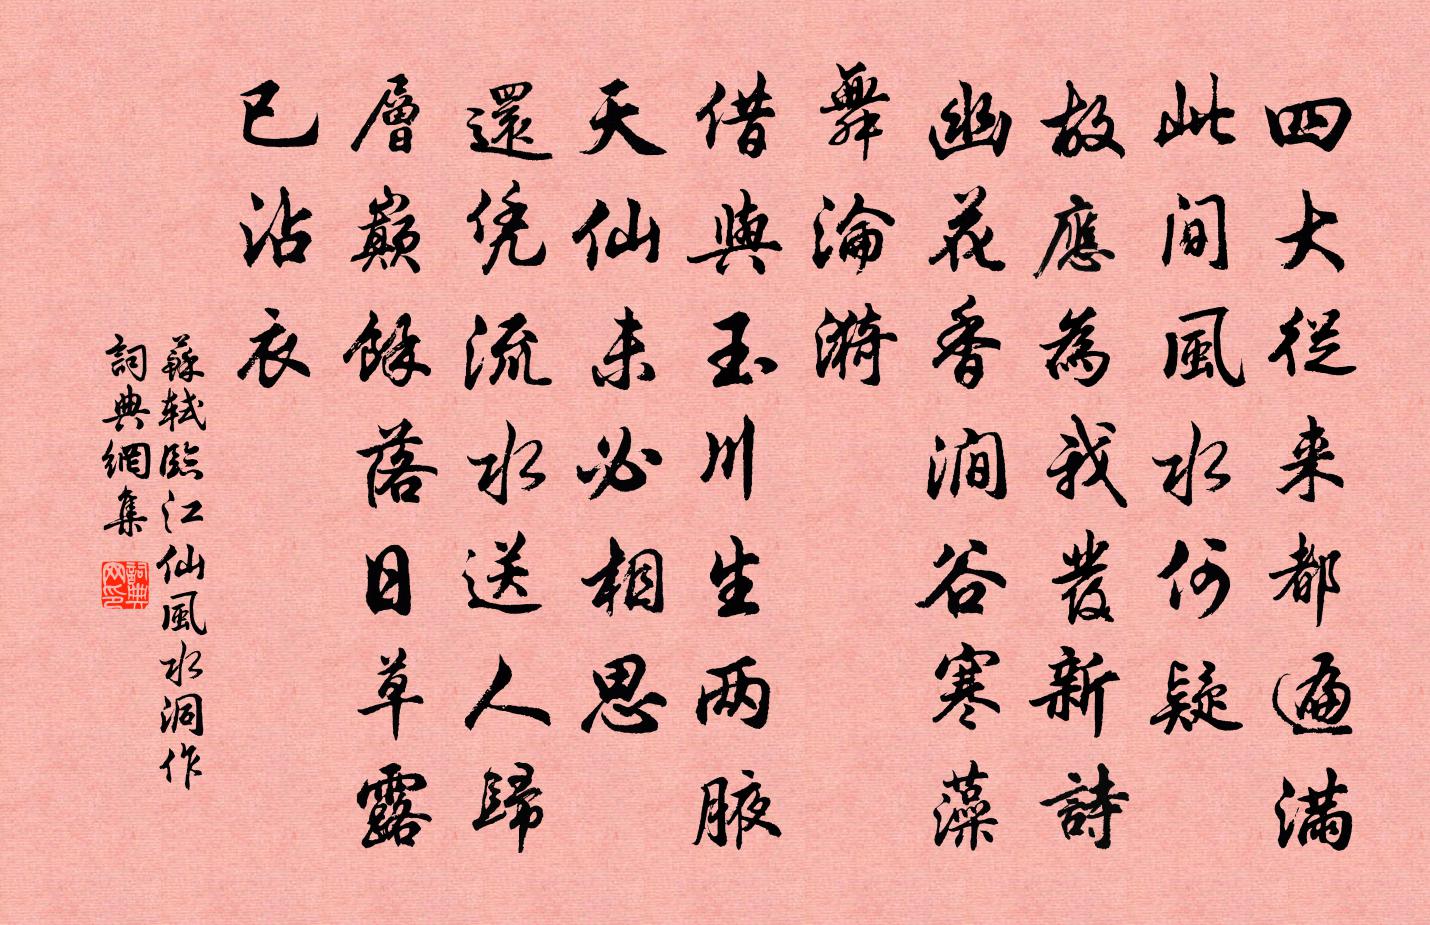 四大從来都遍满
此间風水何疑
故應為我發新詩
幽花香澗谷寒藻
舞淪漪
借與玉川生两腋
天仙未必相思
還凭流水送人歸
層巔餘落日草露
已沾衣
蘇軾臨江仙風水洞作
詞典網集
詞典
网印